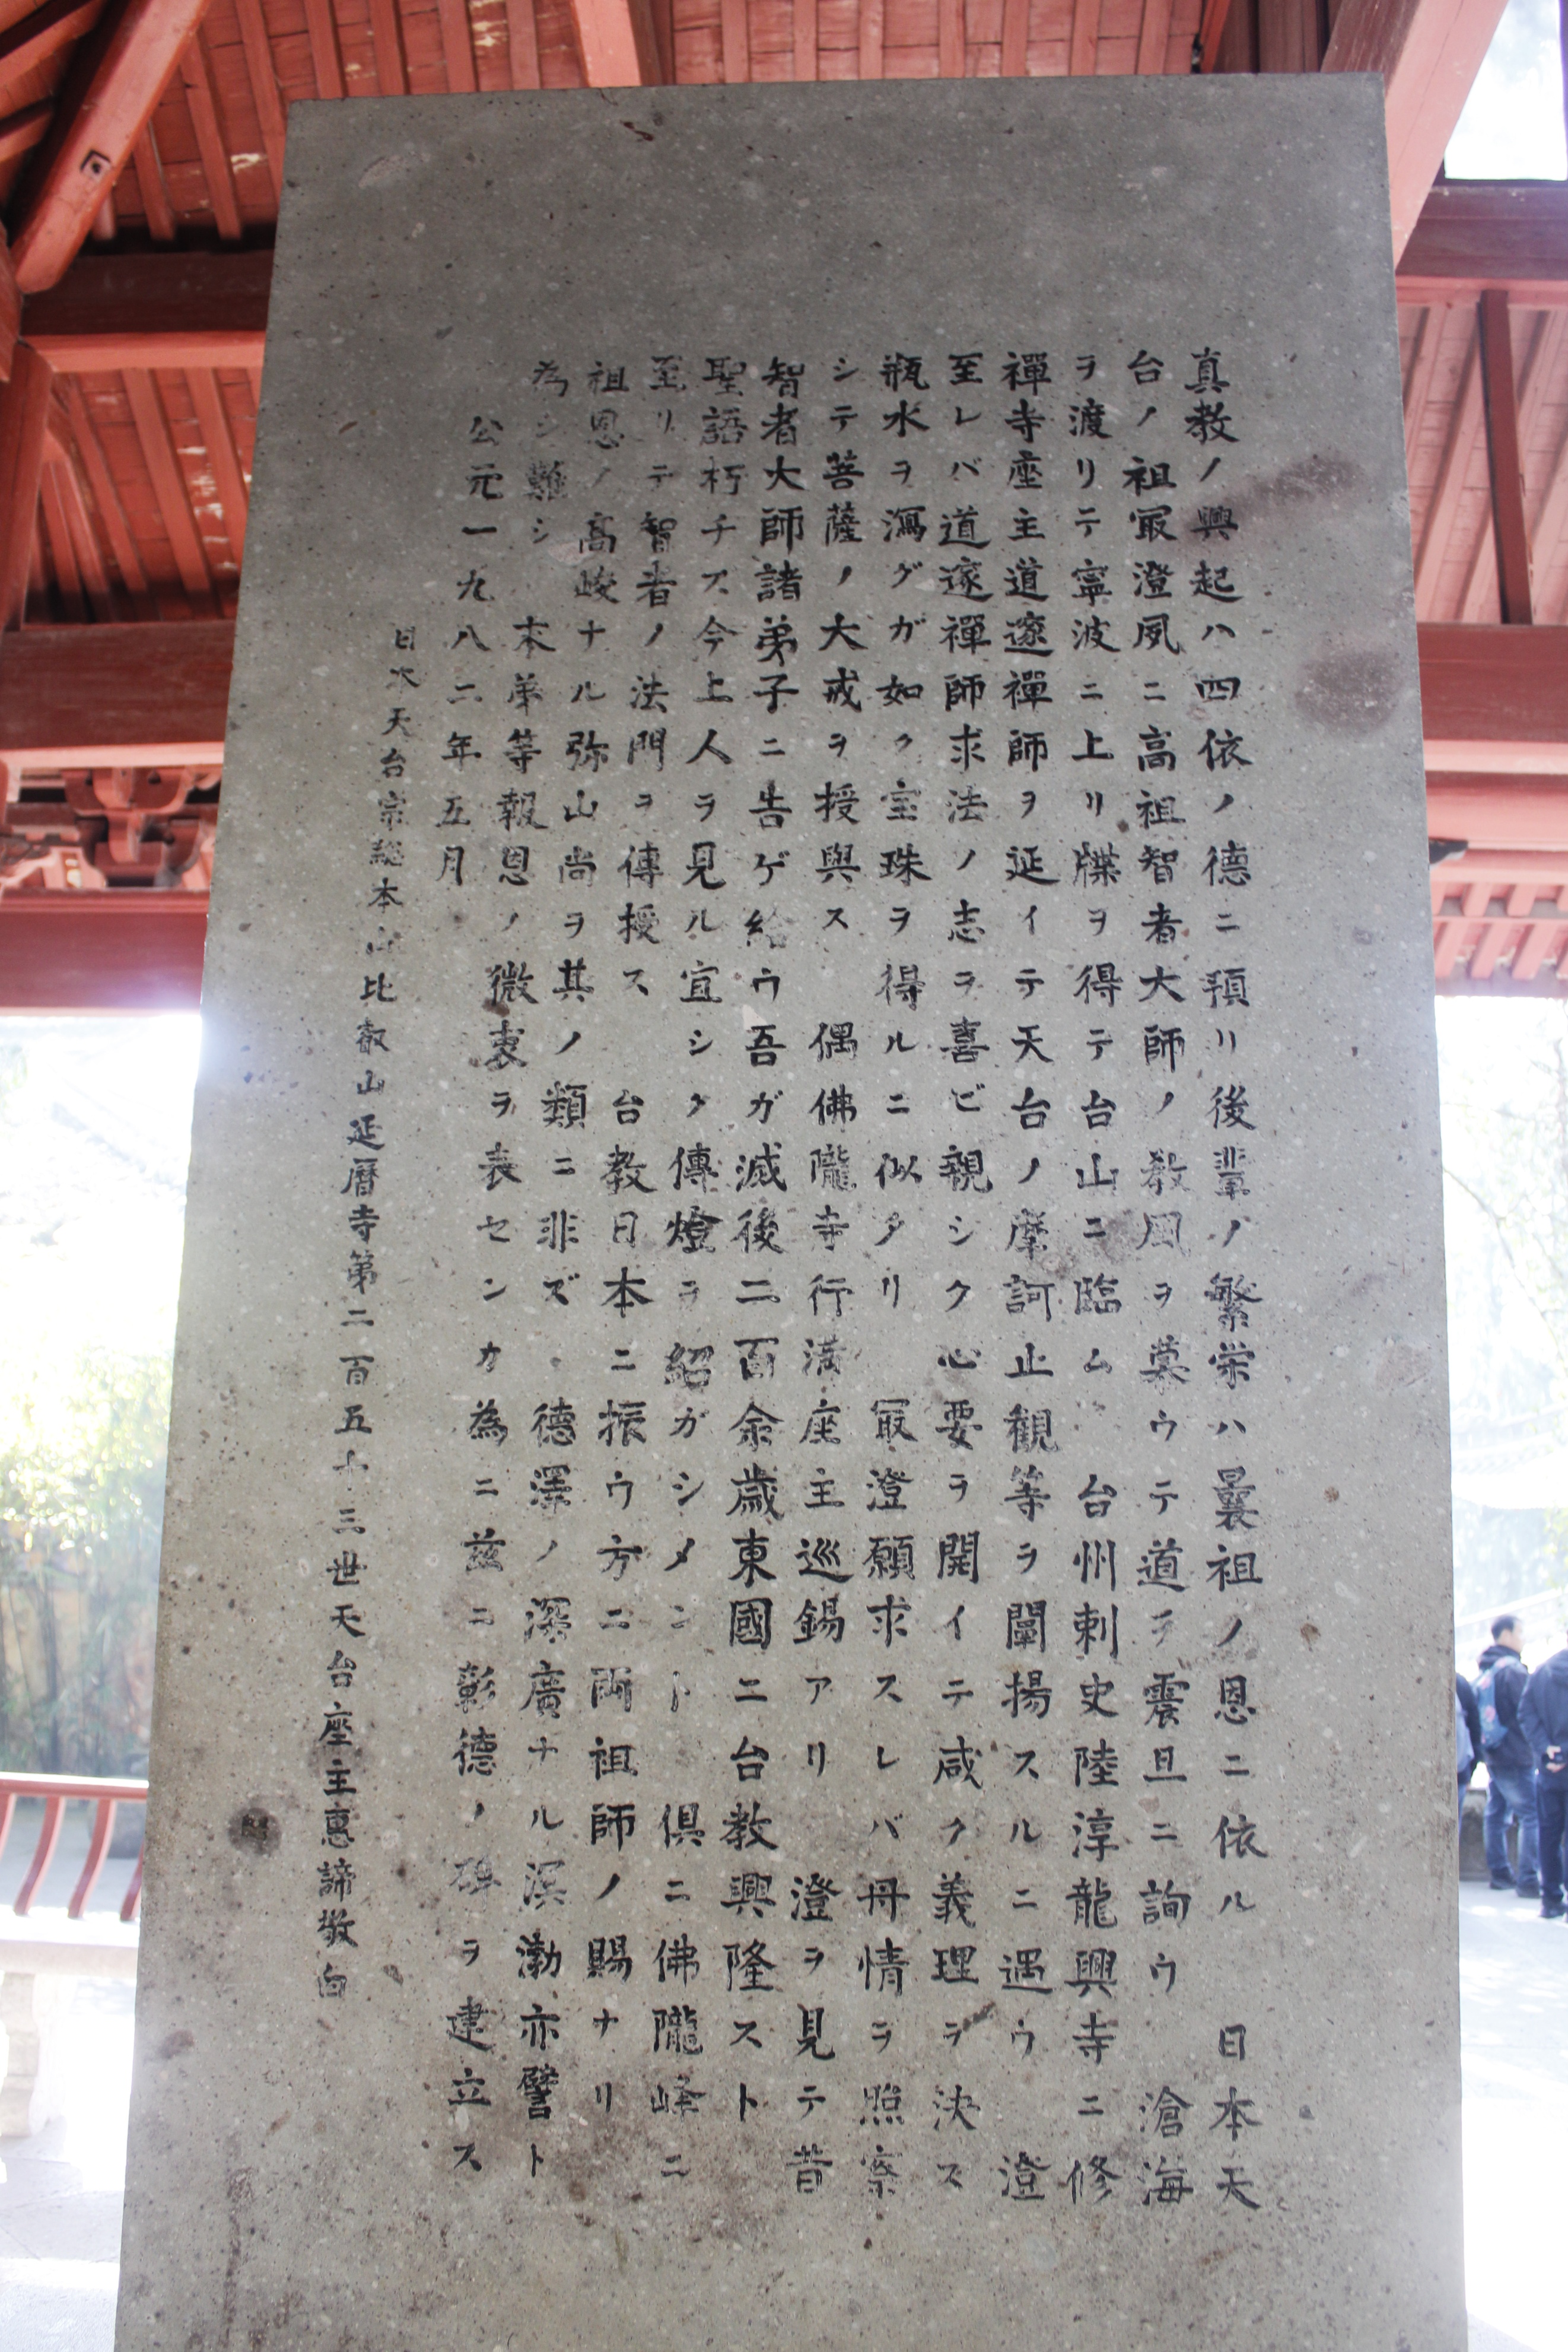 真教ノ興起ハ四依ノ德ニ預リ後輩ノ繁栄ハ曩祖ノ恩ニ依ル　日本天
台ノ祖冣澄夙ニ高祖智者大師ノ教風ヲ慕ウテ道ヲ震旦ニ詢ウ　滄海
ヲ渡リテ寧波ニ上リ牒ヲ得テ台山ニ臨ム　台州刺史陸淳龍興寺ニ修
禪寺座主道邃禪師ヲ延イテ天台ノ摩訶止観等ヲ闡揚スルニ遇ウ　澄
至レバ道邃禪師求法ノ志ヲ喜ビ親シク心要ヲ開イテ咸ク義理ヲ決ス
瓶水ヲ瀉グガ如ク室珠ヲ得ルニ似タリ　冣澄願求スレバ丹情ヲ照察
シテ菩薩ノ大戒ヲ授與ス　偶佛隴寺行満座主巡錫アリ　澄ヲ見テ昔
智者大師諸弟子ニ告ゲ給ウ吾ガ滅後二百余歲東國ニ台教興隆スト
聖語朽チズ今上人ヲ見ル宜シク傳燈ヲ紹ガシメント　倶ニ佛隴峰ニ
至リテ智者ノ法門ヲ傳授ス　台教日本ニ振ウ方ニ両祖師ノ賜ナリ
祖恩ノ高峻ナル弥山尚ヲ其ノ類ニ非ズ　德澤ノ深廣ナル溟渤亦譬ト
為シ難シ　本弟等報恩ノ微衷ヲ表センガ為ニ茲ニ彰德ノ碑ヲ建立ス
公元一九八二年五月
日本天台宗総本山比叡山延暦寺第二百五十三世天台座主惠諦敬白